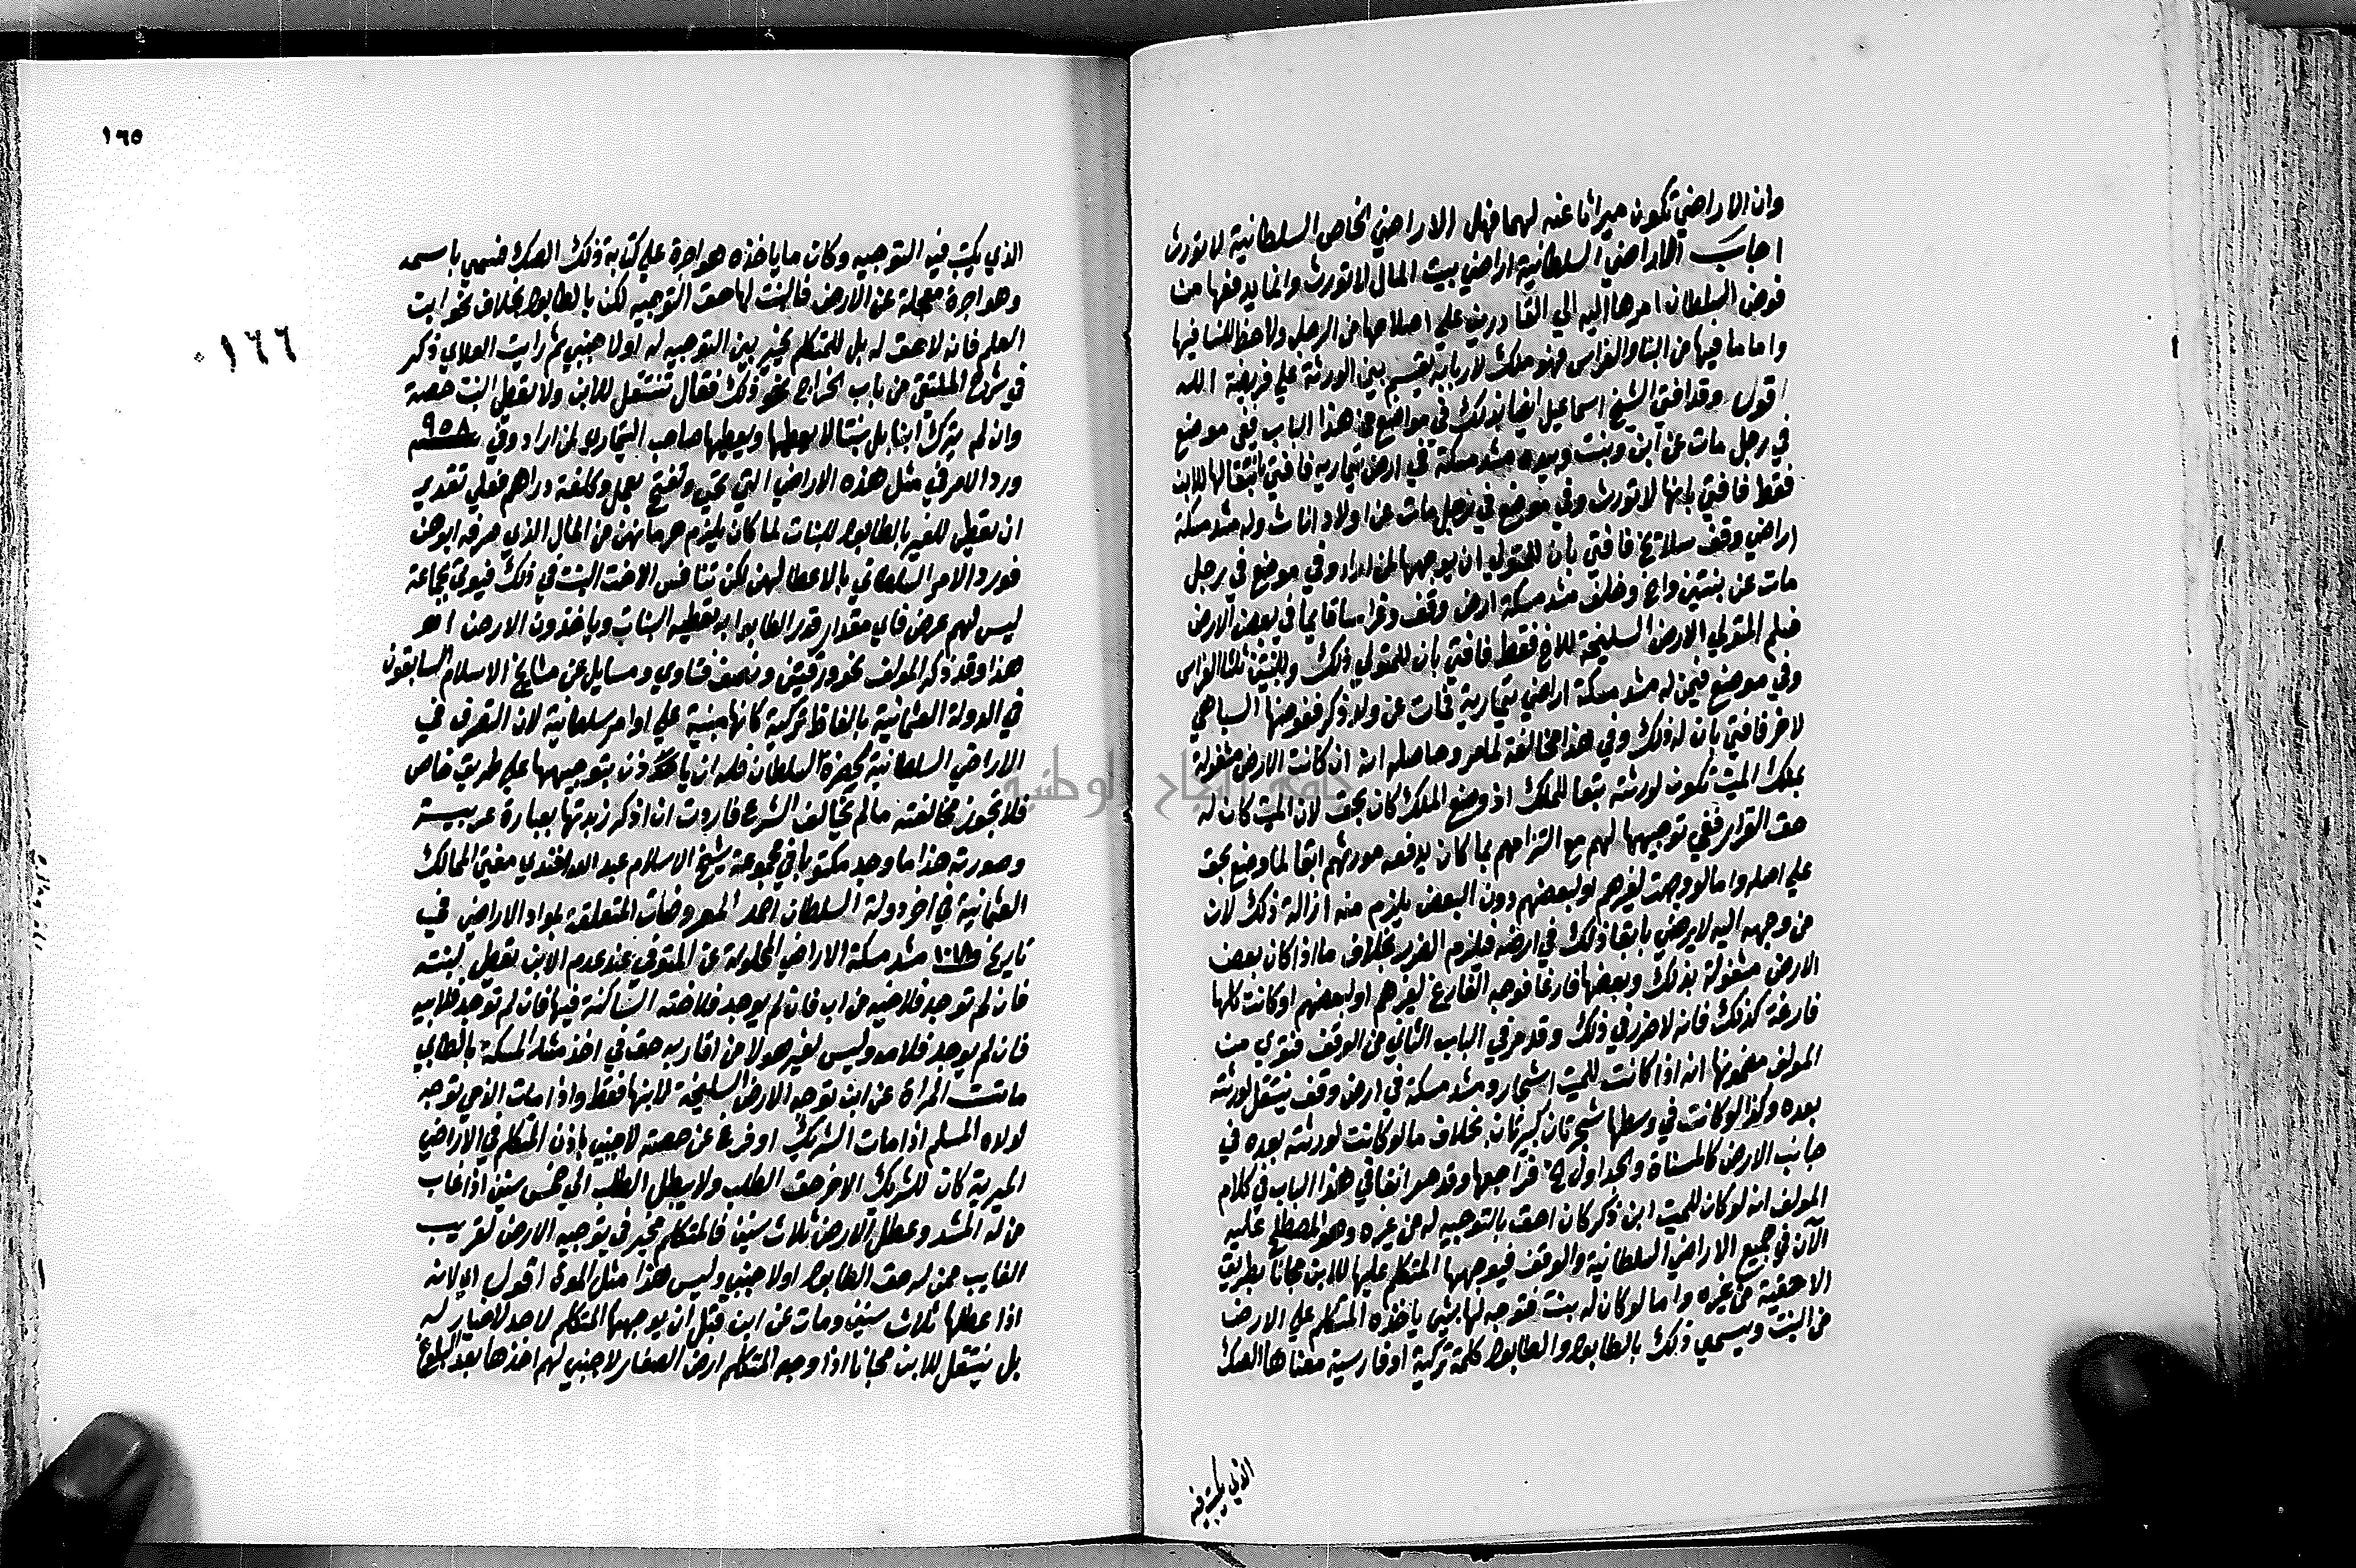 وان الاراضي تكون ميراثا عنه لهما فهل الاراضي الخاص السلطانية لا تورث
اجاب الاراضي السلطانية اراضي بيت المال لا تورث وانما يدفعها من
فوض السلطان امرها اليه الي القادرين علي اصلاحها من الرجل ولا حظ للنسا فيها
واما ما فيها من البنا والغراس فهو ملك لاربابه يقسم بين الورثة علي فريضة الله
اقول وقد افتي الشيخ اسماعيل ايضا بذلك في مواضع من هذا الباب ففي موضع
في رجل مات عن ابن وبنت وبيده مشد مسكة في ارض تيمارية فافتي بانتقالها للابن
فقط فافتي بانها لا تورث وفي موضع في رجل مات عن اولاد اناث وله مشد مسكة
اراضي وقف سلايخ فافتي بان للمتولي ان يوجهها لمن اراد وفي موضع في رجل
مات عن بنتين واخ وخلف مشد مسكة ارض وقف وغراسا قايما في بعض الارض
فسلم المتولي الارض السليخة للاخ فقط فافتي بان للمتولي ذلك وللبنتين ثلثا الغراس
وفي موضع فيمن له مشد مسكة اراضي تيمارية فمات عن ولد ذكر ففوضها السباهي
لاخر فافتي بان له ذلك وفي هذا مخالفة لما مر وحاصله انه ان كانت الارض مشغولة
بملك الميت تكون لورثته تبعا للملك اذ وضع الملك كان بحق لان الميت كان له
حق القرار ففي توجيهها لهم مع التزامهم بما كان يدفعه مورثهم ابقا لما وضع بحق
علي اصله واما لو وجهت لغيرهم او لبعضهم دون البعض يلزم منه ازالة ذلك لان
من وجهه اليه لا يرضي بابقا ذلك في ارضه فيلزم الضرر بخلاف ما اذا كان بعض
الارض مشغولة بذلك وبعضها فارغا فوجه الفارغ لغيرهم او لبعضهم او كانت كلها
فارغة كذلك فانه لا ضرر في ذلك وقد مر في الباب الثاني من الوقف فتوي من
المولف مضمونها انه اذا كانت للميت اشجار ومشد مسكة في ارض وقف ينتقل لورثته
بعده وكذا لو كانت في وسطها شجرتان كبيرتان بخلاف ما لو كانت لورثته بعده في
جانب الارض كالمسناة والجداول فراجعها وقد مر انفا في هذا الباب في كلام
المولف انه لو كان للميت ابن ذكر كان احق بالتوجيه له من غيره وهو المصطلح عليه
الآن في جميع الاراضي السلطانية والوقف فيوجهها المتكلم عليها للابن مجانا بطريق
الاحقية من غيره واما لو كان له بنت فتوجه لها بشي ياخذه المتكلم علي الارض
من البنت ويسمي ذلك بالطابو والطابو كلمة تركية او فارسية معناها الصك
الذي يكتب فيه
١٦٥
١٦٦
الذي يكتب فيه التوجيه وكان ما ياخذه هو اجرة علي كتابة ذلك الصك فسمي باسمه
وهو اجرة معجلة عن الارض فالبنت لها حق التوجيه لكن بالطابو بخلاف نحو ابن
العم فانه لا حق له بل للمتكلم يخير بين التوجيه له او لاجنبي ثم رايت العلاي ذكر
في شرح الملتقي من باب الخراج نحو ذلك فقال تنتقل للابن ولا تعطي البنت حصة
وان لم يترك ابنا بل بنتا لا يعطها ويعطيها صاحب التيمار لمن اراد وفي سنة ٩٥٨
ورد الامر في مثل هذه الاراضي التي تحي وتفتح بعمل وكلفة دراهم فعلي تقدير
ان تعطي للغير بالطابو للبنات لما كان يلزم حرمانهن من المال الذي صرفه ابوهن
فورد الامر السلطاني بالاعطا لهن لكن تنافس الاخت البنت في ذلك فيوتي بجماعة
ليس لهم غرض فاي مقدار قدر الطابو به تعطيه البنات وياخذون الارض اه
هذا وقد ذكر المولف نحو ورقتين ونصف فتاوي ومسايل عن مشايخ الاسلام السابقون
في الدولة العثمانية بالفاظ تركية كانها مبنية علي اوامر سلطانية لان التصرف في
الاراضي السلطانية بحضرة السلطان فله ان ياذن بتوجيهها علي طريق خاص
فلا تجوز مخالفته ما لم يخالف الشرع فاردت ان اذكر زبدتها بعبارة عربية
وصورته هذا ما وجد مكتوبا في مجموعة شيخ الاسلام عبد الله افندي مفتي الممالك
العثمانية في اخر دولة السلطان احمد المعروضات المتعلقة بمواد الاراضي في
تاريخ مشد مسكة الاراضي المحلولة عن المتوفي عند عدم الابن تعطي لبنته
فان لم توجد فلاخيه من اب فان لم يوجد فلاخته الساكنة فيها فان لم توجد فلابيه
فان لم يوجد فلامه وليس لغير هولا من اقاربه حق في اخذ مشد المسكة بالطابو
ماتت المراة عن ابن توجه الارض السليخة لابنها فقط واذا مات الذمي توجه
لولاه المسلم اذا مات الشريك او فرغ عن حصته لاجنبي باذن المتكلم في الاراضي
الميرية كان للشريك الاخر حق الطلب ولا يبطل الطلب الي خمس سنين اذا غاب
من له المشد وعطل الارض ثلاث سنين فالمتكلم مخير في توجيه الارض لقريب
الغايب ممن له حق الطابو او لاجنبي وليس هذا مثل الموت اقول اي لانه
اذا عطلها ثلاث سنين ومات عن ابن قبل ان يوجهها المتكلم لاحد لا خيار له
بل ينتقل للابن مجانا اذا وجه المتكلم ارض الصغار لاجنبي لهم اخذها بعد البلوغ